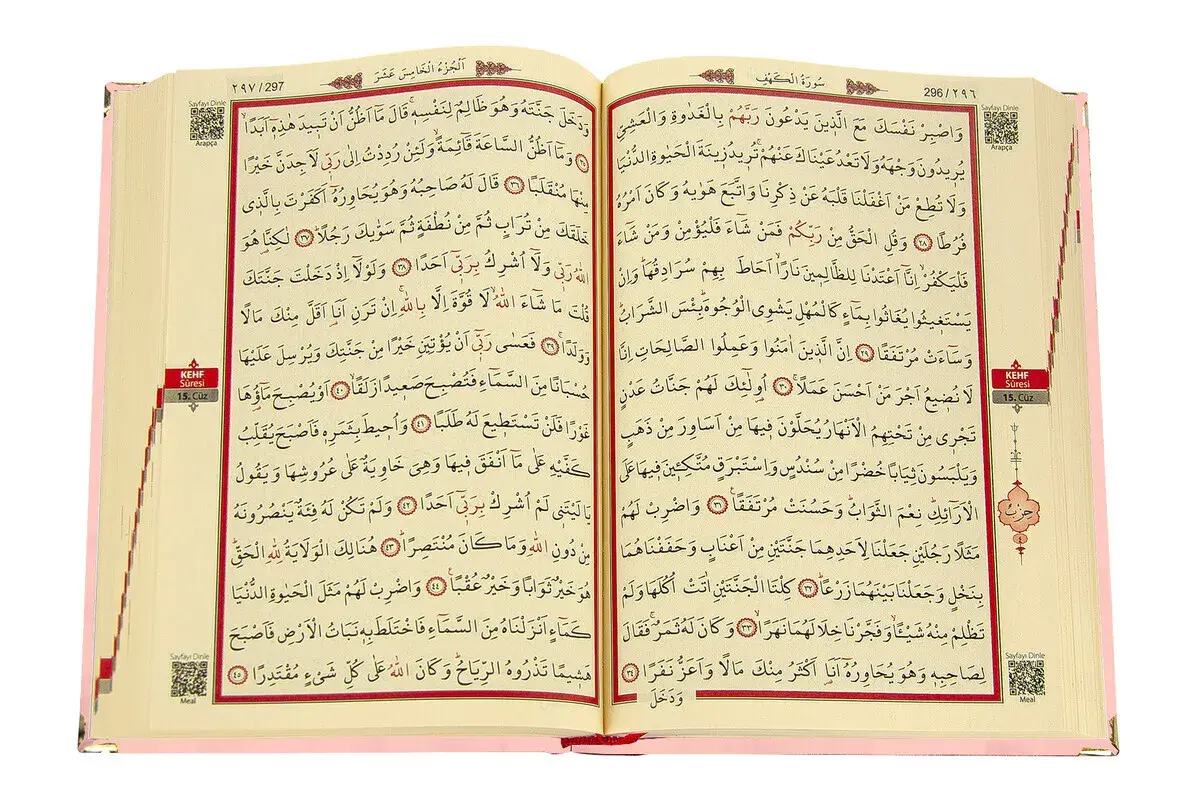 سُورَةُ الْكَهْفِ
296 / ٢٩٦
Sayfayı Dinle
Arapça
وَاصْبِرْ نَفْسَكَ مَعَ الَّذ۪ينَ يَدْعُونَ رَبَّهُمْ بِالْغَدٰوةِ وَالْعَشِيِّ
يُر۪يدُونَ وَجْهَهُ وَلَا تَعْدُ عَيْنَاكَ عَنْهُمْۚ تُر۪يدُ ز۪ينَةَ الْحَيٰوةِ الدُّنْيَا
وَلَا تُطِعْ مَنْ اَغْفَلْنَا قَلْبَهُ عَنْ ذِكْرِنَا وَاتَّبَعَ هَوٰيهُ وَكَانَ اَمْرُهُ
فُرُطًا ﴿٢٨﴾ وَقُلِ الْحَقُّ مِنْ رَبِّكُمْ فَمَنْ شَٓاءَ فَلْيُؤْمِنْ وَمَنْ شَٓاءَ
فَلْيَكْفُرْۙ اِنَّٓا اَعْتَدْنَا لِلظَّالِم۪ينَ نَارًاۙ اَحَاطَ بِهِمْ سُرَادِقُهَاۜ وَاِنْ
يَسْتَغ۪يثُوا يُغَاثُوا بِمَٓاءٍ كَالْمُهْلِ يَشْوِي الْوُجُوهَۜ بِئْسَ الشَّرَابُۜ
وَسَٓاءَتْ مُرْتَفَقًا ﴿٢٩﴾ اِنَّ الَّذ۪ينَ اٰمَنُوا وَعَمِلُوا الصَّالِحَاتِ اِنَّا
لَا نُض۪يعُ اَجْرَ مَنْ اَحْسَنَ عَمَلًاۚ ﴿٣٠﴾ اُو۬لٰٓئِكَ لَهُمْ جَنَّاتُ عَدْنٍ
تَجْر۪ي مِنْ تَحْتِهِمُ الْاَنْهَارُ يُحَلَّوْنَ ف۪يهَا مِنْ اَسَاوِرَ مِنْ ذَهَبٍ
وَيَلْبَسُونَ ثِيَابًا خُضْرًا مِنْ سُنْدُسٍ وَاِسْتَبْرَقٍ مُتَّكِـ۪ٔينَ ف۪يهَا عَلَى
الْاَرَٓائِكِۜ نِعْمَ الثَّوَابُۜ وَحَسُنَتْ مُرْتَفَقًا۟ ﴿٣١﴾ وَاضْرِبْ لَهُمْ
مَثَلًا رَجُلَيْنِ جَعَلْنَا لِاَحَدِهِمَا جَنَّتَيْنِ مِنْ اَعْنَابٍ وَحَفَفْنَاهُمَا
بِنَخْلٍ وَجَعَلْنَا بَيْنَهُمَا زَرْعًاۜ ﴿٣٢﴾ كِلْتَا الْجَنَّتَيْنِ اٰتَتْ اُكُلَهَا وَلَمْ
تَظْلِمْ مِنْهُ شَيْـًٔاۙ وَفَجَّرْنَا خِلَالَهُمَا نَهَرًاۙ ﴿٣٣﴾ وَكَانَ لَهُ ثَمَرٌۚ فَقَالَ
لِصَاحِبِه۪ وَهُوَ يُحَاوِرُهُٓ اَنَا۬ اَكْثَرُ مِنْكَ مَالًا وَاَعَزُّ نَفَرًا ﴿٣٤﴾
وَدَخَلَ
KEHF
Sûresi
15. Cüz
حزب
٤
Sayfayı Dinle
Meal
اَلْجُزْءُ الْخَامِسَ عَشَرَ
٢٩٧ / 297
Sayfayı Dinle
Arapça
وَدَخَلَ جَنَّتَهُ وَهُوَ ظَالِمٌ لِنَفْسِه۪ۚ قَالَ مَٓا اَظُنُّ اَنْ تَب۪يدَ هٰذِه۪ٓ اَبَدًاۙ
﴿٣٥﴾ وَمَٓا اَظُنُّ السَّاعَةَ قَٓائِمَةً وَلَئِنْ رُدِدْتُ اِلٰى رَبّ۪ي لَاَجِدَنَّ خَيْرًا
مِنْهَا مُنْقَلَبًا ﴿٣٦﴾ قَالَ لَهُ صَاحِبُهُ وَهُوَ يُحَاوِرُهُٓ اَكَفَرْتَ بِالَّذ۪ي
خَلَقَكَ مِنْ تُرَابٍ ثُمَّ مِنْ نُطْفَةٍ ثُمَّ سَوّٰيكَ رَجُلًاۜ ﴿٣٧﴾ لٰكِنَّا۬ هُوَ
اللّٰهُ رَبّ۪ي وَلَٓا اُشْرِكُ بِرَبّ۪ٓي اَحَدًا ﴿٣٨﴾ وَلَوْلَٓا اِذْ دَخَلْتَ جَنَّتَكَ
قُلْتَ مَا شَٓاءَ اللّٰهُۙ لَا قُوَّةَ اِلَّا بِاللّٰهِۚ اِنْ تَرَنِ اَنَا۬ اَقَلَّ مِنْكَ مَالًا
وَوَلَدًاۚ ﴿٣٩﴾ فَعَسٰى رَبّ۪ٓي اَنْ يُؤْتِيَنِ خَيْرًا مِنْ جَنَّتِكَ وَيُرْسِلَ عَلَيْهَا
حُسْبَانًا مِنَ السَّمَٓاءِ فَتُصْبِحَ صَع۪يدًا زَلَقًاۙ ﴿٤٠﴾ اَوْ يُصْبِحَ مَٓاؤُ۬هَا
غَوْرًا فَلَنْ تَسْتَط۪يعَ لَهُ طَلَبًا ﴿٤١﴾ وَاُح۪يطَ بِثَمَرِه۪ فَاَصْبَحَ يُقَلِّبُ
كَفَّيْهِ عَلٰى مَٓا اَنْفَقَ ف۪يهَا وَهِيَ خَاوِيَةٌ عَلٰى عُرُوشِهَا وَيَقُولُ
يَا لَيْتَن۪ي لَمْ اُشْرِكْ بِرَبّ۪ٓي اَحَدًا ﴿٤٢﴾ وَلَمْ تَكُنْ لَهُ فِئَةٌ يَنْصُرُونَهُ
مِنْ دُونِ اللّٰهِ وَمَا كَانَ مُنْتَصِرًاۜ ﴿٤٣﴾ هُنَالِكَ الْوَلَايَةُ لِلّٰهِ الْحَقِّۜ
هُوَ خَيْرٌ ثَوَابًا وَخَيْرٌ عُقْبًا۟ ﴿٤٤﴾ وَاضْرِبْ لَهُمْ مَثَلَ الْحَيٰوةِ الدُّنْيَا
كَمَٓاءٍ اَنْزَلْنَاهُ مِنَ السَّمَٓاءِ فَاخْتَلَطَ بِه۪ نَبَاتُ الْاَرْضِ فَاَصْبَحَ
هَش۪يمًا تَذْرُوهُ الرِّيَاحُۜ وَكَانَ اللّٰهُ عَلٰى كُلِّ شَيْءٍ مُقْتَدِرًا ﴿٤٥﴾
KEHF
Sûresi
15. Cüz
Sayfayı Dinle
Meal